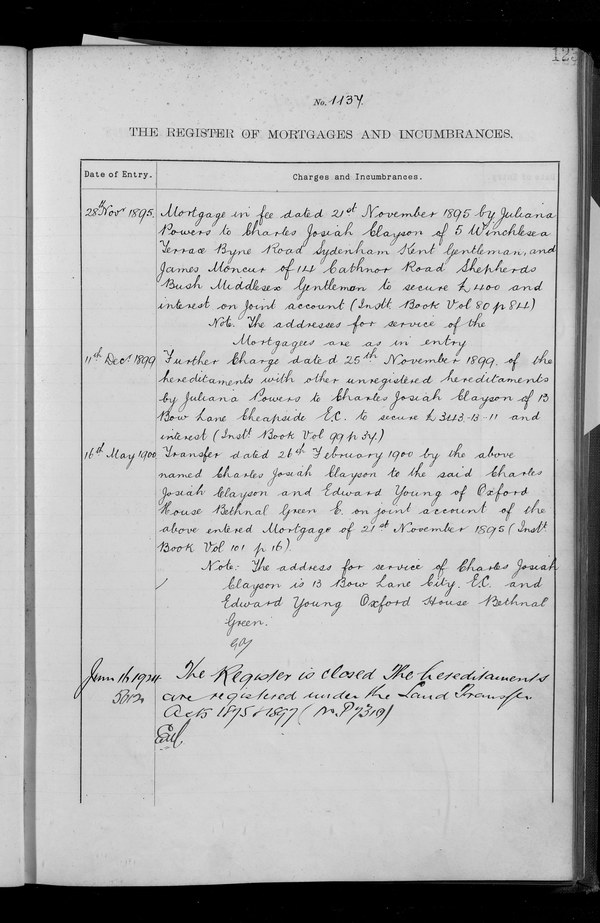 No. 1137
THE REGISTER OF MORTGAGES AND INCUMBRANCES.
Date of Entry.
Charges and Incumbrances.
28th Novr 1895. Mortgage in fee dated 21st November 1895 by Juliana
Powers to Charles Josiah Clayson of 5 Winchlesea
Terrace Byne Road Sydenham Kent Gentleman, and
James Moncur of 14 Cathnor Road Shepherds
Bush Middlesex Gentleman to secure £400 and
interest on joint account (Instt Book Vol 80 p 84)
Note. The addresses for service of the
Mortgagees are as in entry
11th Decr 1899 Further Charge dated 25th November 1899. of the
hereditaments with other unregistered hereditaments
by Juliana Powers to Charles Josiah Clayson of 13
Bow Lane Cheapside E.C. to secure £343-13-11 and
interest (Instt Book Vol 99 p 34.)
16th May 1900 Transfer dated 26th February 1900 by the above
named Charles Josiah Clayson to the said Charles
Josiah Clayson and Edward Young of Oxford
House Bethnal Green E. on joint account of the
above entered Mortgage of 21st November 1895 (Instt
Book Vol 101 p 16).
Note: The address for service of Charles Josiah
Clayson is 13 Bow Lane City. E.C. and
Edward Young Oxford House Bethnal
Green.
The Register is closed The hereditaments
are registered under the Land Transfer
Acts 1875 & 1897